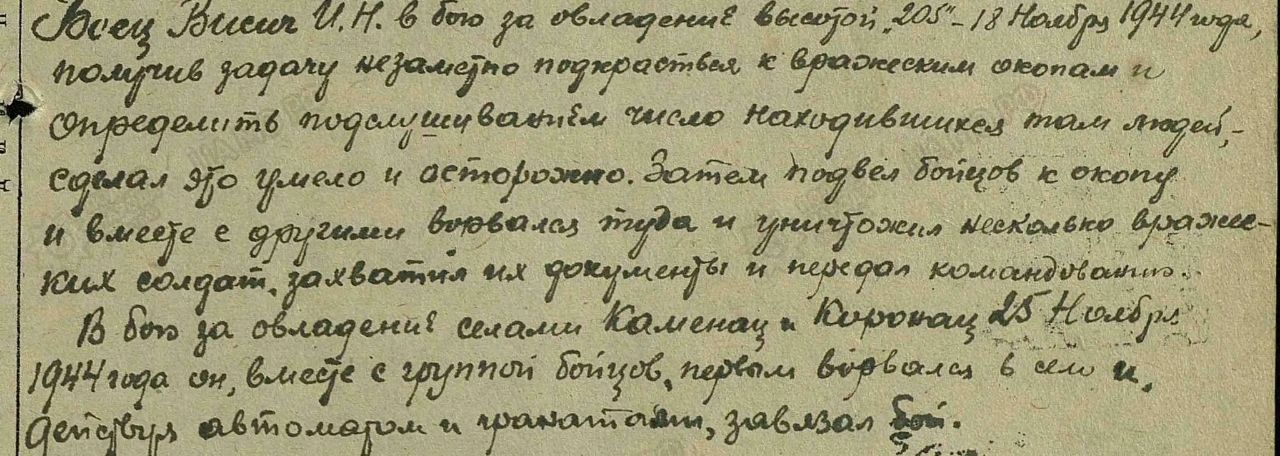 Боец Висич И.Н. в бою за овладение высотой „205“ - 18 Ноября 1944 года,
получив задачу незаметно подкрасться к вражеским окопам и
определить подслушиванием число находившихся там людей, -
сделал это умело и осторожно. Затем подвел бойцов к окопу
и вместе с другими ворвался туда и уничтожил несколько вражес-
ких солдат, захватил их документы и передал командованию.
В бою за овладение селами Каменац и Коронац 25 Ноября
1944 года он, вместе с группой бойцов, первым ворвался в село и,
действуя автоматом и гранатами, завязал бой.